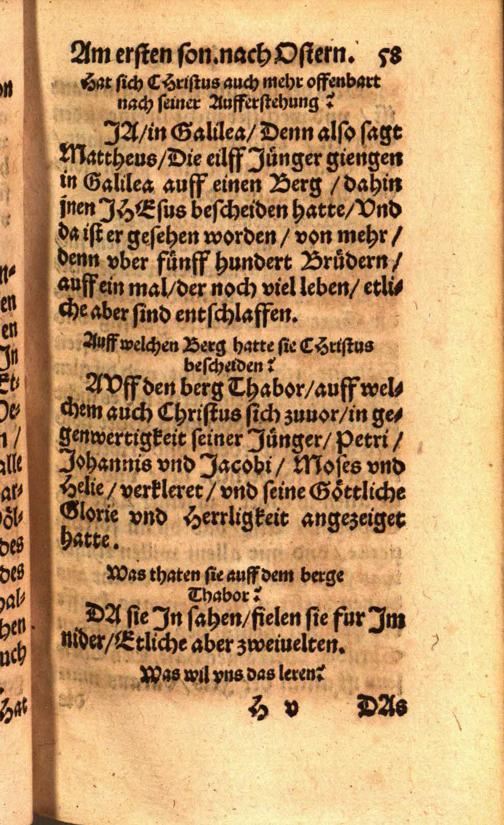 Am ersten son. nach Ostern. 58
Hat sich CHristus auch mehr offenbart
nach seiner Aufferstehung?
JA/in Galilea/Denn also sagt
Mattheus/Die eilff Jünger giengen
in Galilea auff einen Berg /dahin
jnen JHEsus bescheiden hatte/Vnd
da ist er gesehen worden / von mehr /
denn vber fünff hundert Brüdern /
auff ein mal/der noch viel leben/ etli-
che aber sind entschlaffen.
Auff welchen Berg hatte sie CHristus
bescheiden?
AVff den berg Thabor/auff wel-
chem auch Christus sich zuuor/in ge-
genwertigkeit seiner Jünger/Petri /
Johannis vnd Jacobi/ Moses vnd
Helie/verkleret/vnd seine Göttliche
Glorie vnd Herrligkeit angezeiget
hatte.
Was thaten sie auff dem berge
Thabor?
DA sie Jn sahen/fielen sie fur Jm
nider/Etliche aber zweiuelten.
Was wil vns das leren?
H v DAs